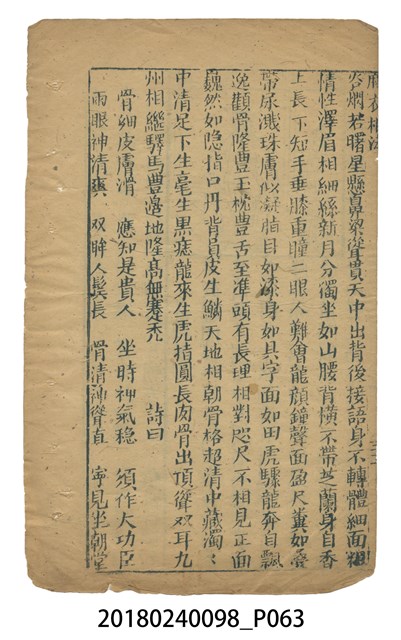 麻衣相法
容爛若曙星懸鼻象聳貫天中出背後接語身不轉體細面粗
情性澤眉相細絲新月分獨坐如山腰背橫不帶芝蘭身自香
上長下短手垂膝重瞳二眼人難會龍顔鐘聲面盈尺糞如疊
帶尿濺珠膚似凝脂目如漆身如具字面如田虎驟龍奔自飄
逸顴骨隆豊玉枕豊舌至準頭有長理相對咫尺不相見正面
巍然如隐指口丹背負皮生鱗天地相朝骨格超清中藏濁〻
中清足下生毫生黒痣龍來生虎指圓長肉骨出頂聳双耳九
州相繼驛馬豊邉地隆高無蹇禿　詩曰
骨細皮膚滑　應知是貴人　坐時神氣穏　須作大功臣
兩眼神清爽　双眸入鬓長　骨清神聳直　寧見坐朝堂
20180240098_P063